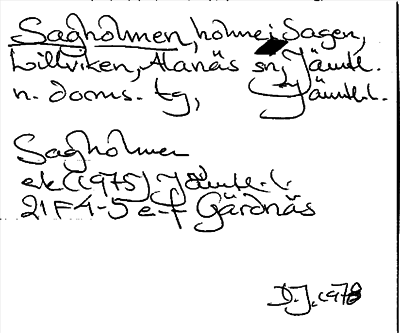 Sagholmen, holme i Sagen,
Lillviken, Alanäs sn, Jämtl.
n. doms. tg, Jämtl.l.
Sagholmen
ek (1975) Jämtl. l.
21F 4-5 e-f Gärdnäs
D.J. 1978